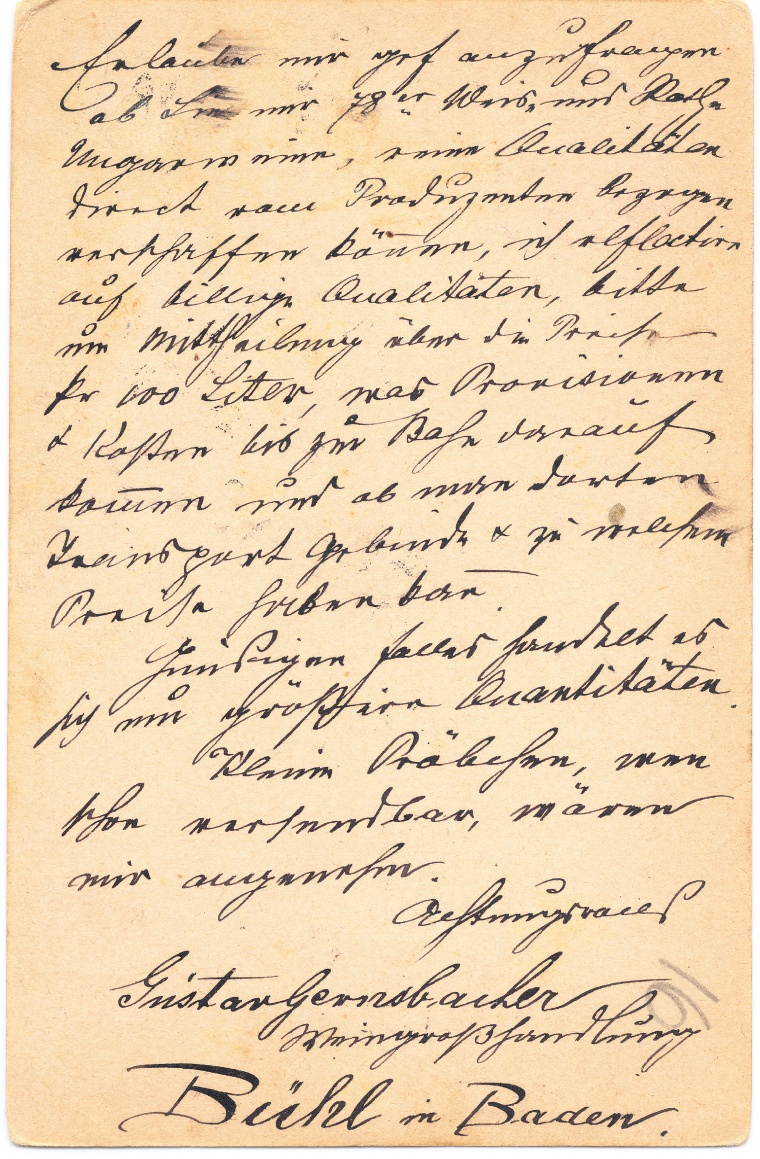 Erlaube mir gef anzufragen
ob Sie mir 78er Weis- und Rothe
Ungarweine, reine Qualitäten
direct vom Produzenten bezogen
verschaffen können, ich reflectire
auf billige Qualitäten, bitte
um Mittheilung über die Preise
pr 100 Liter, was Provisionen
& Kosten bis zur Bahn darauf
kom̅en und ob man dorten
Transport Gebinde & zu welchem
Preise haben kan̅
Günstigen falles handelt es
sich um größere Quantitäten.
Kleine Pröbchen, wen
schon versendbar, wären
mir angenehm.
Achtungsvoll
Gustav Gernsbacher
Weingroßhandlung
Bühl in Baden.
91